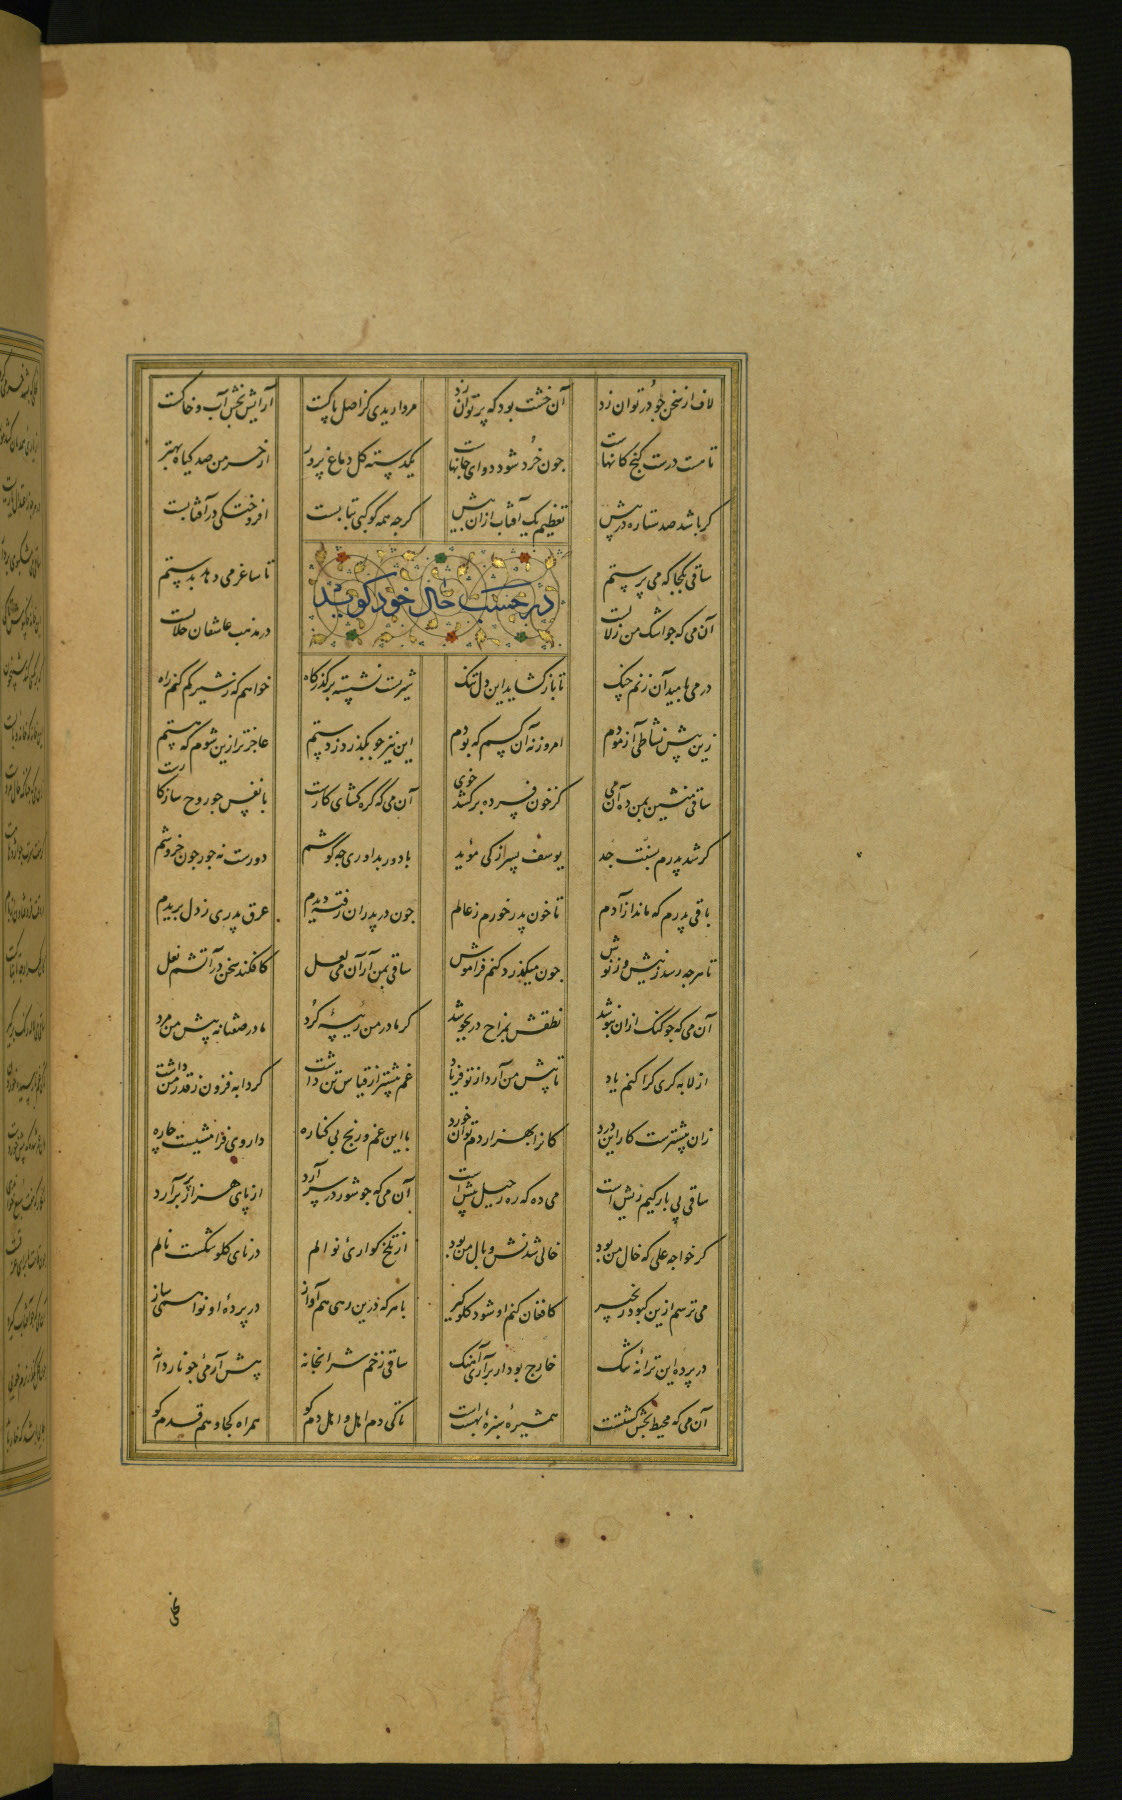 لاف از سخن چو در توان زد آن خشت بود که پر توان زد مرواریدی کز اصل پاکست آرایش بخش آب و خاکست
تا هست درست گنج کانهاست چون خرد شود دوای جانهاست یکدسته گل دماغ پرور از خرمن صد کیاه بهتر
کر باشد صد ستاره در پیش تعظیم یک آفتاب ازان بیش کرچه همه کوکبی بتابست افروختگی در آفتابست
در حسب حال خود گوید
ساقی بکجا که می پرستم تا ساغر می دهد بدستم
آن می که چو اشک من زلالست در مذهب عاشقان حلالست
در می بامید آن زنم چنگ تا باز کشاید این دل تنگ شیریست نشسته بر گذرگاه خواهم که ز شیر کم کنم راه
زین پیش نشاطی آزمودم امروز نه آن کسم که بودم این نیز چو بگذرد ز دستم عاجزتر ازین شوم که هستم
ساقی منشین بمن ده آن می کز خون فسرده برکشد خوی آن می که گره کشای کارست با نفس چو روح سازگارست
کر شد پدرم بسنت جد یوسف پسر زکی مؤید با دور بداوری چه کوشم دورست نه جور چون خروشم
باقی پدرم که ماند از آدم تا خون پدر خورم ز عالم چون در پدران رفته دیدم عرق پدری ز دل بریدم
تا هرچه رسد ز نیش و نوش چون میکذرد کنم فراموش ساقی بمن آر آن می لعل کافکند سخن در آتشم نعل
آن می که چو گنگ ازان بنوشد نطقش بمزاج در بجوشد کر مادر من رئیسه کرد مادر صفتانه پیش من مرد
از لابه کری کرا کنم یاد تا پیش من آرد از تو فریاد غم بیشتر از قیاس تن داشت کردابه فزون ز قد من داشت
زان بیشترست کاس این درد کانرا بهزار دم توان خورد با این غم و رنج بی کناره داروی فرامشیست چاره
ساقی پی بارگیم ریش است می ده که ره رحیل پیش است آن می که چو شور در سر آرد از پای هزار سر برآرد
کر خواجه علی که خال من بود خالی شدنش وبال من بود از تلخ گواری نوالم در نای کلو شکست نالم
می ترسم ازین کبود زنجیر کافغان کنم او شود کلوگیر با هرکه درین رهی هم آواز در پرده او نوا همی ساز
در پرده این ترانه تنگ خارج بود ار برآری آهنگ ساقی ز خم شرابخانه پیش آر می چو ناردانه
آن می که محیط بخش کشتست همشیره شیره بهشتست تا کی دم اهل و اهل دم کو همراه کجا و هم قدم کو